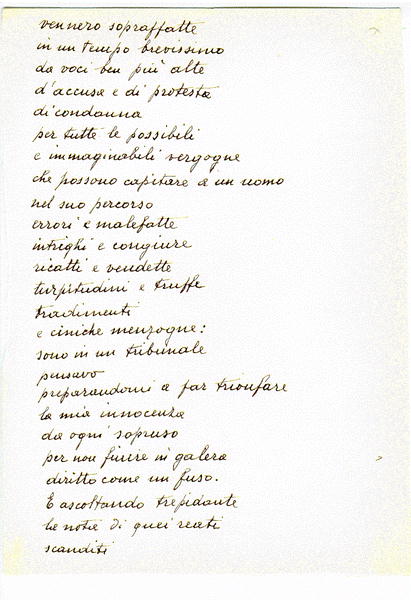 vennero sopraffatte
in un tempo brevissimo
da voci ben più alte
d'accusa e di protesta
di condanna
per tutte le possibili
e immaginabili vergogne
che possono capitare a un uomo
nel suo percorso
errori e malefatte
intrighi e congiure
ricatti e vendette
turpitudini e truffe
tradimenti
e ciniche menzogne:
sono in un tribunale
pensavo
preparandomi a far trionfare
la mia innocenza
da ogni sopruso
per non finire in galera
diritto come un fuso.
E ascoltando trepidante
le note di quei reati
scanditi